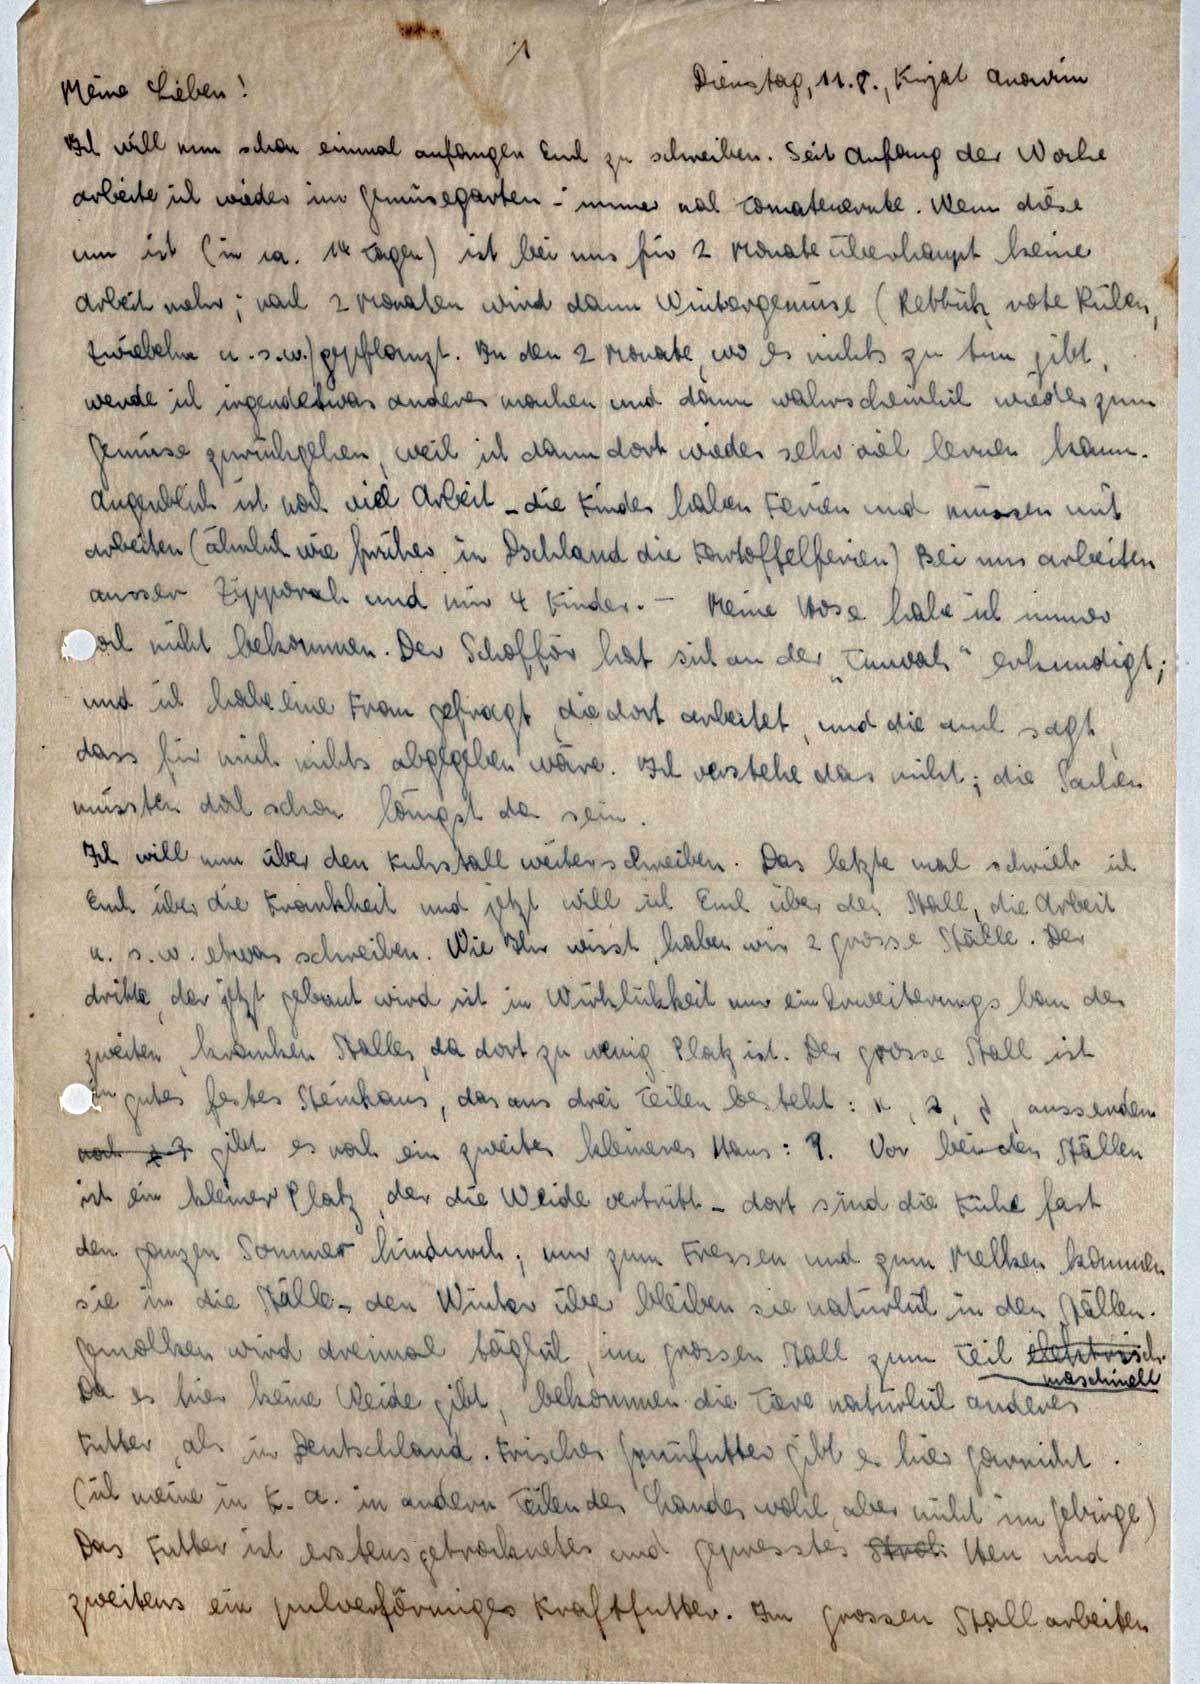 1
Dienstag, 11.8., Kirjat Anavim
Meine Lieben!
Ich will nun schon einmal anfangen Euch zu schreiben. Seit Anfang der Woche
arbeite ich wieder im Gemüsegarten - immer noch Tomatenernte. Wenn diese
um ist (in ca. 14 Tagen) ist bei uns für 2 Monate überhaupt keine
Arbeit mehr; nach 2 Monaten wird dann Wintergemüse (Rettich, rote Rüben,
Zwiebeln u.s.w.) gepflanzt. In den 2 Monate, wo es nichts zu tun gibt,
werde ich irgendetwas anderes machen und dann wahrscheinlich wieder zum
Gemüse zurückgehen, weil ich dann dort wieder sehr viel lernen kann.
Augenblich ist noch viel Arbeit - die Kinder haben Ferien und müssen mit
arbeiten (ähnlich wie früher in Dschland die Kartoffelferien) Bei uns arbeiten
ausser Zipporah und mir 4 Kinder. - Meine Hose habe ich immer
noch nicht bekommen. Der Schofför hat sich an der "Tnuvah" erkundigt;
und ich habe eine Frau gefragt, die dort arbeitet, und die auch sagt,
dass für mich nichts abgegeben wäre. Ich verstehe das nicht; die Sachen
müssten doch schon längst da sein.
Ich will nun über den Kuhstall weiterschreiben. Das letzte mal schrieb ich
Euch über die Krankheit und jetzt will ich Euch über den Stall, die Arbeit
u. s. w. etwas schreiben. Wie Ihr wisst, haben wir 2 grosse Ställe. Der
dritte, der jetzt gebaut wird ist in Wirklichkeit nur ein Erweiterungsbau des
zweiten, kranken Stalles, da dort zu wenig Platz ist. Der grosse Stall ist
ein gutes festes Steinhaus, das aus drei Teilen besteht: א, ב, ג, ausserdem
noch gibt es noch ein zweites kleineres Haus: ?. Vor beiden Ställen
ist ein kleiner Platz, der die Weide vertritt - dort sind die Kühe fast
den ganzen Sommer hindurch; nur zum Fressen und zum Melken kommen
sie in die Ställe - den Winter über bleiben sie natürlich in den Ställen.
Gemolken wird dreimal täglich, im grossen Stall zum Teil elektrisch
maschinell
Da es hier keine Weide gibt, bekommen die Tiere natürlich anderes
Futter, als in Deutschland. Frisches Grünfutter gibt es hier garnicht.
(ich meine in K. A. in andern Teilen des Landes wohl, aber nicht im Gebirge)
Das Futter ist erstens getrocknetes und gepresstes Stroh Heu und
zweitens ein pulverförmiges Kraftfutter. Im grossen Stall arbeiten